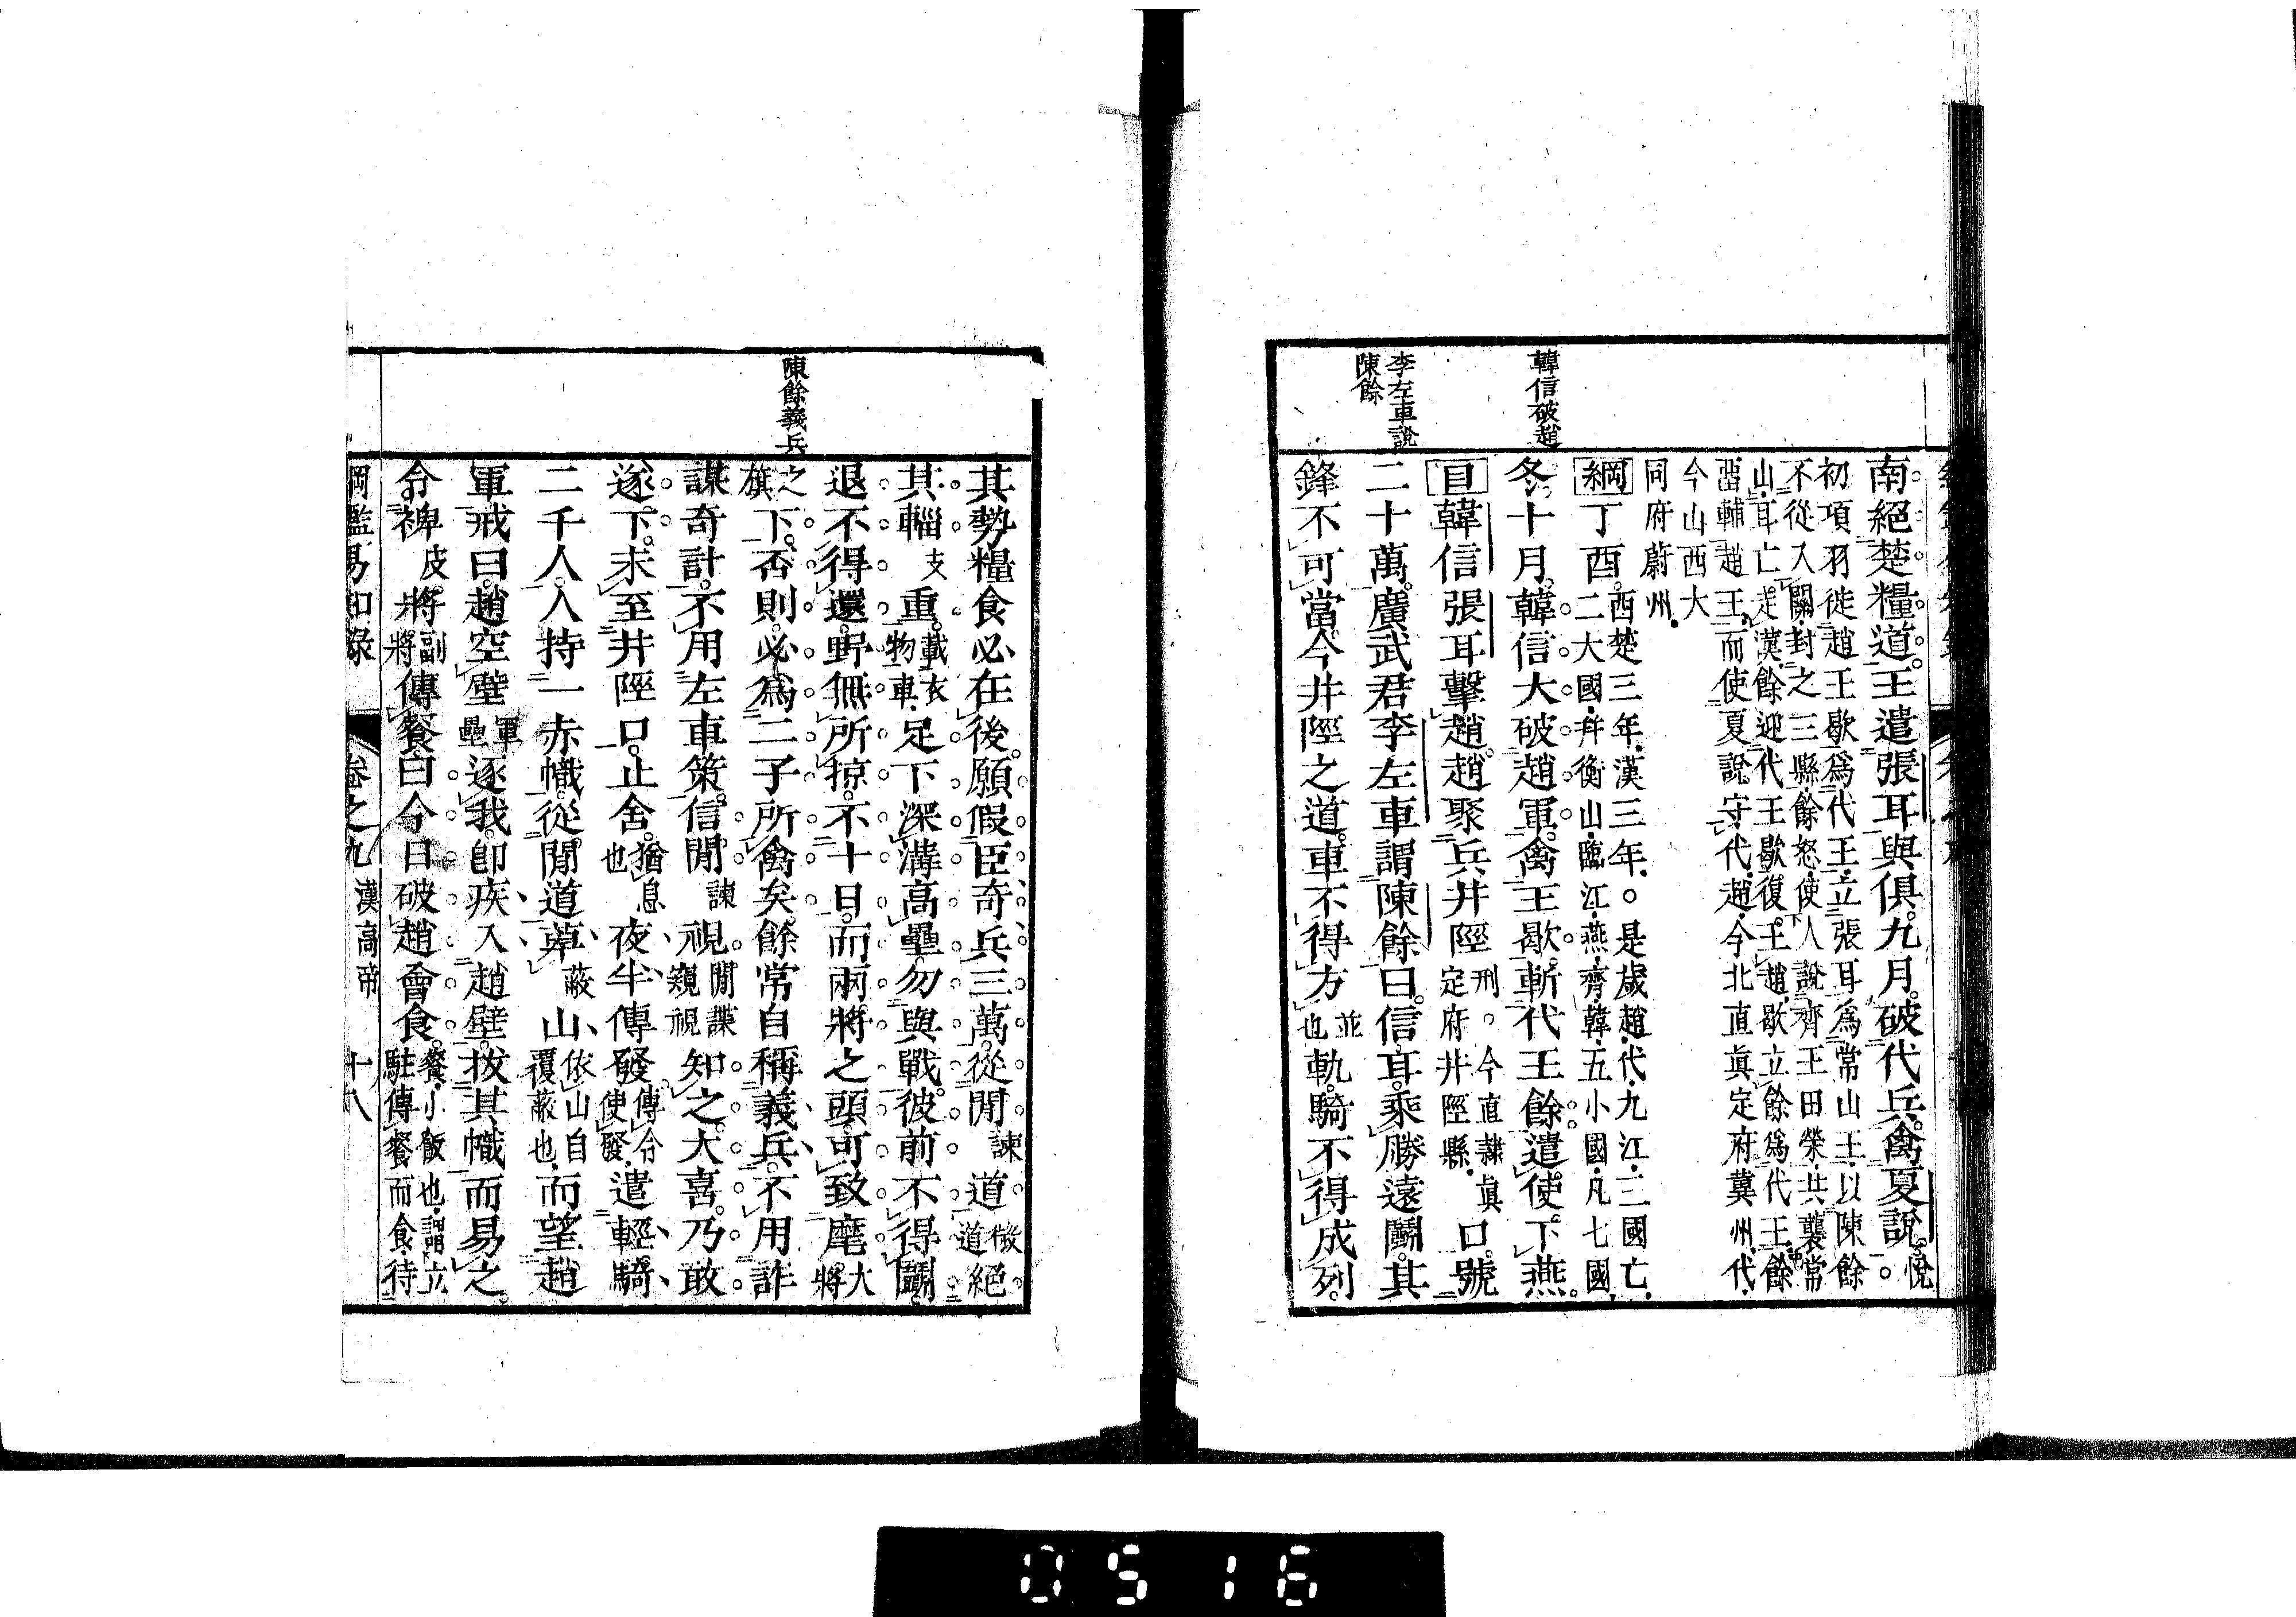 韓信破趙
李左車說
陳餘
南絕楚糧道。王遣張耳與俱。九月。破代兵。禽夏說。悅。
初項羽徙趙王歇爲代王。立張耳爲常山王。以陳餘
不從入關。封之三縣。餘怒。使人說齊王田榮。共襲常
山。耳亡走漢。餘迎代王歇。復王趙。歇立餘爲代王。餘
畱輔趙王。而使夏說守代。趙。今北直眞定府冀州。代。
今山西大
同府蔚州。
綱丁酉。西楚三年。漢三年。○是歲趙。代。九江。三國亡。
二大國。幷衡山。臨江。燕。齊。韓。五小國。凡七國。
冬。十月。韓信大破趙軍。禽王歇。斬代王餘。遣使。下燕。
目韓信張耳擊趙。趙聚兵井陘刑。今直隸眞
定府井陘縣。口。號
二十萬。廣武君李左車謂陳餘曰。信耳。乘勝遠鬭。其
鋒不可當。今井陘之道。車不得方並
也軌。騎不得成列。
陳餘義兵
其勢糧食必在後。願假臣奇兵三萬。從閒諫道微
道絕
其輜支重。載衣
物車。足下深溝高壘。勿與戰。彼前不得鬭。
退不得還。野無所掠。不十日。而兩將之頭。可致麾大
將
之
旗下。否則。必爲二子所禽矣。餘常自稱義兵。不用詐
謀奇計。不用左車策。信閒諫視。閒諜
窺視知之。大喜。乃敢
遂下。未至井陘口。止舍。猶息
也夜半傳發。傳令
使發。遣輕騎
二千人。人持一赤幟。從閒道萆蔽山依山自
覆蔽也。而望趙
軍。戒曰。趙空壁軍
壘逐我。卽疾入趙壁。拔其幟。而易之。
令裨皮將副
將傳餐。曰今日破趙會食。餐。小飯也。謂立
駐傳餐而食。待
綱鑑易知錄 卷之九 漢高帝 十八
0516